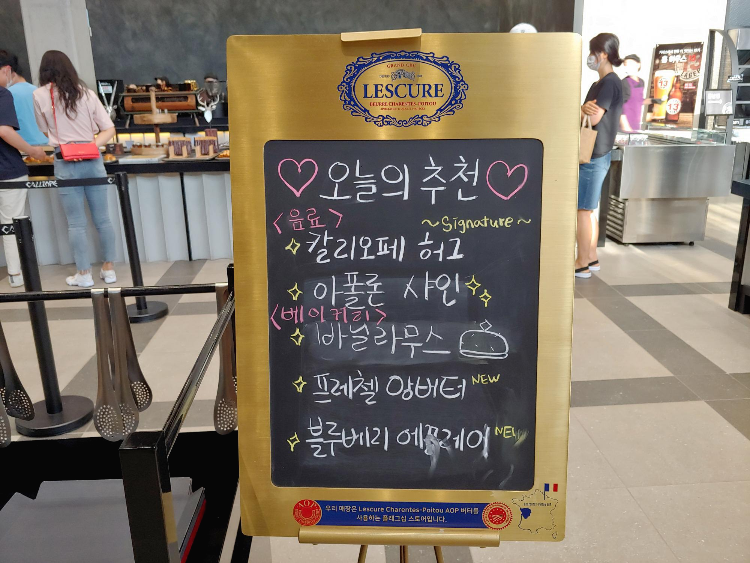 GRAND CRU
LESCURE
BEURRE CHARENTES-POITOU
♡오늘의 추천♡
<음료>
~Signature~
칼리오페 허그
아폴론 샤인
<베이커리>
바닐라무스
프레첼 앙버터 NEW
블루베리 에끌레어 NEW
우리 매장은 Lescure Charentes-Poitou AOP 버터를
사용하는 플래그십 스토어입니다.
AOP
CALLIOPE